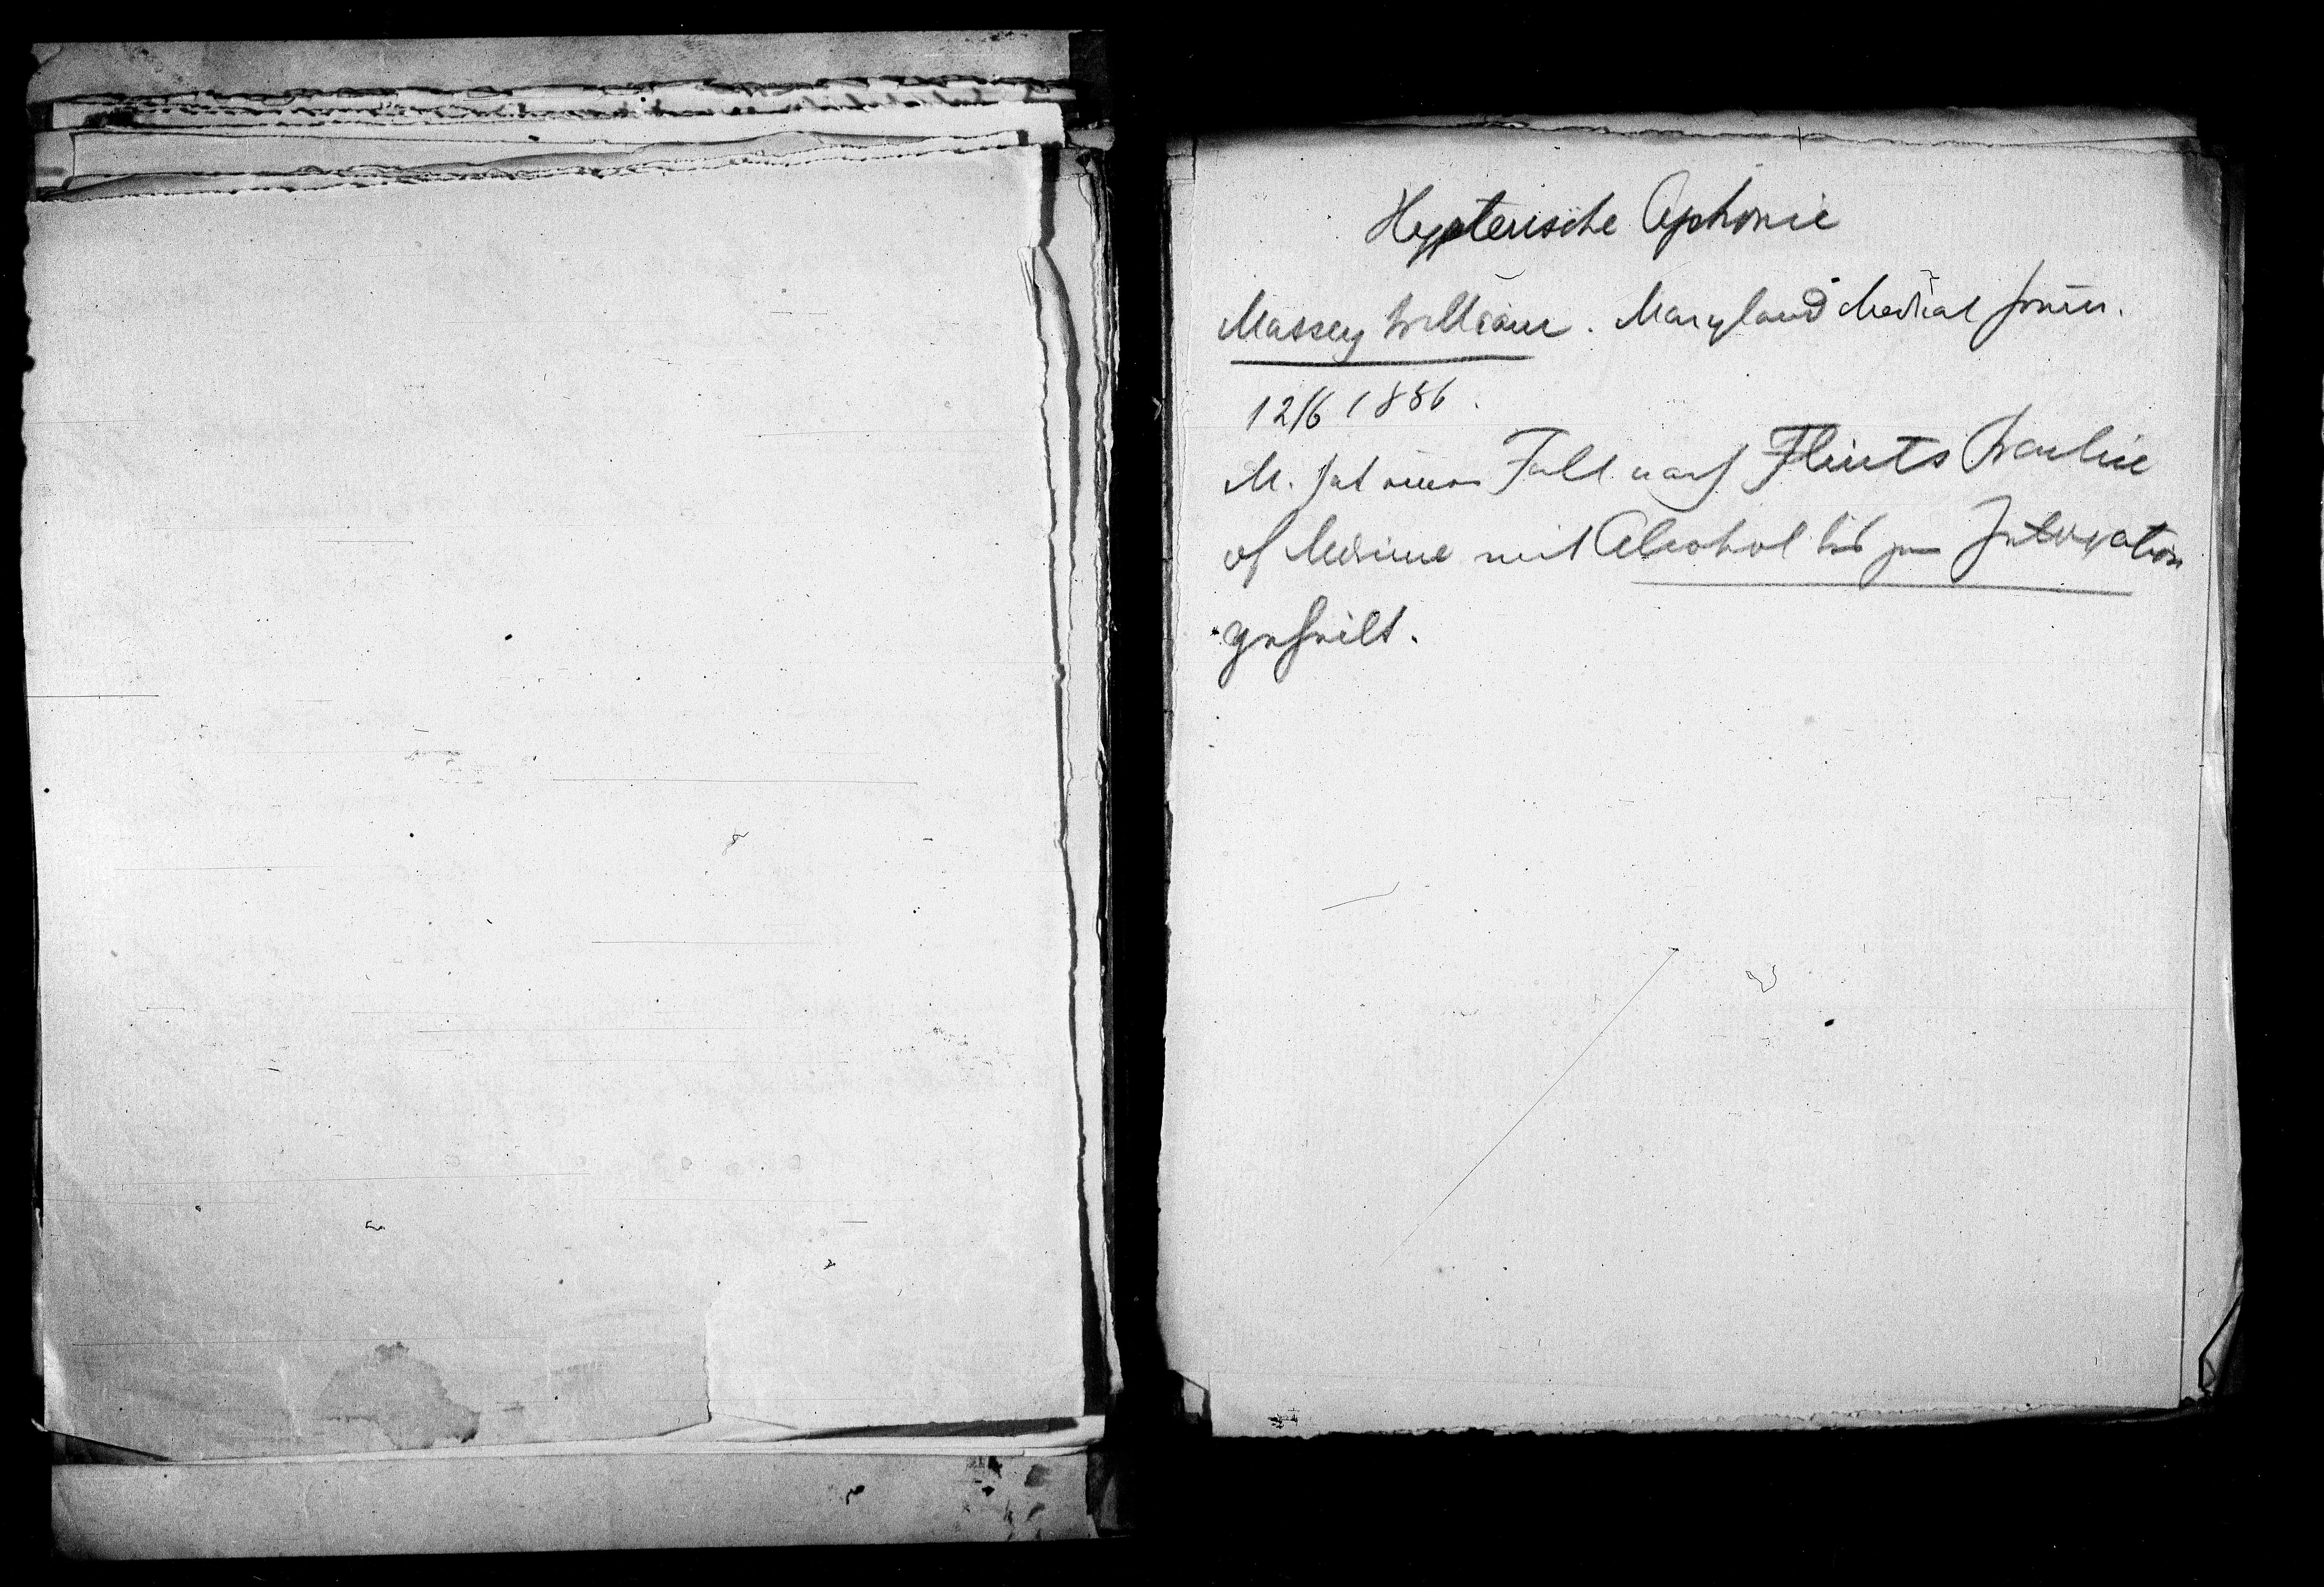 Hysterische Aphonie
Massey William. Maryland Medical Journ.
12/6 1886.
M. hat einen Fall nach Flints Practice
of Medicine mit Alcohol bis zur Intoxation
geheilt.